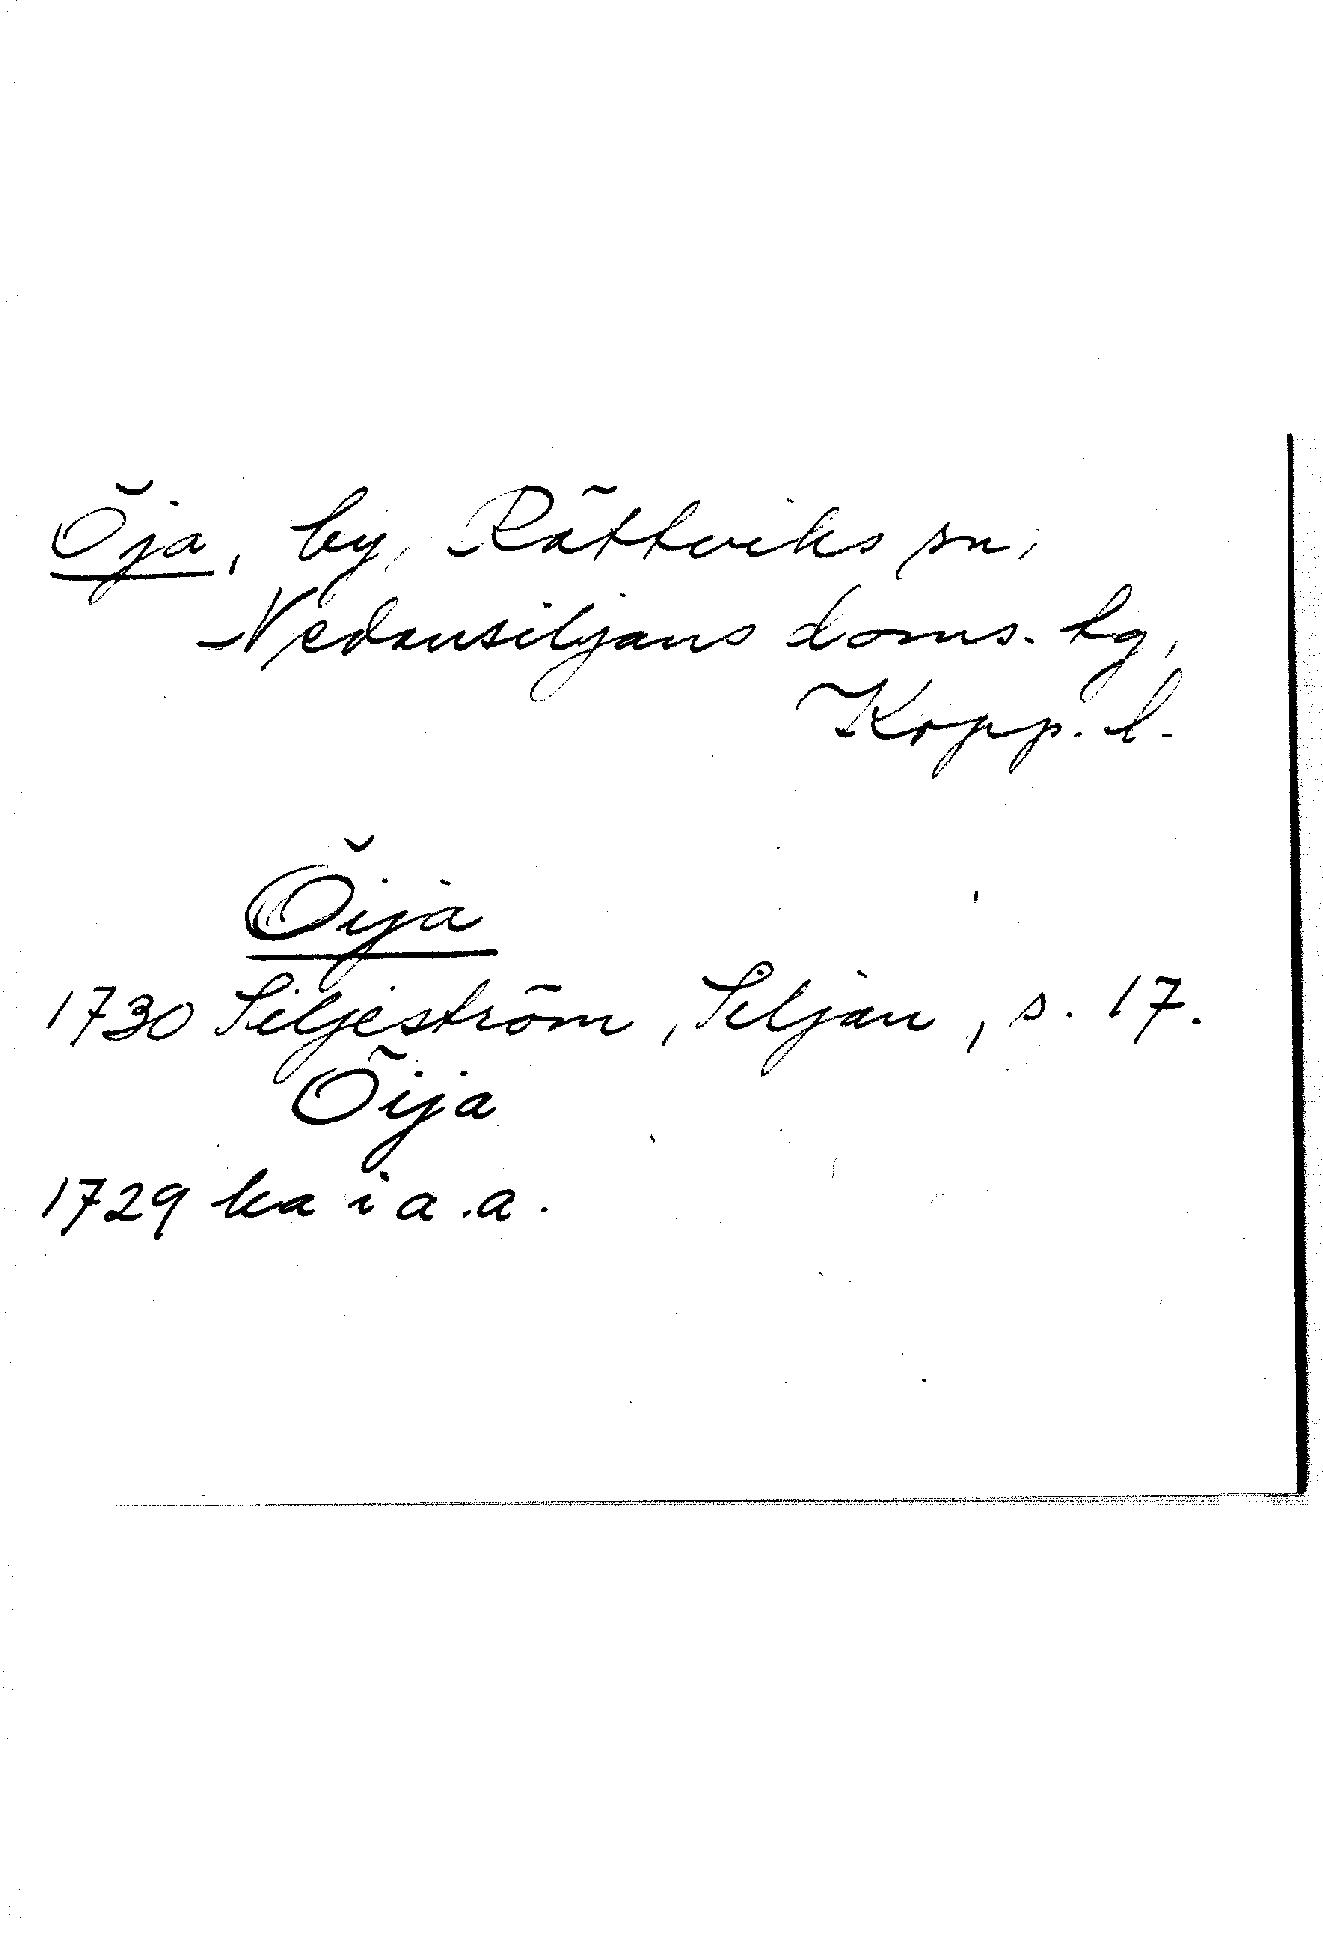 Öja, by, Rättviks sn,
Nedansiljans doms. tg,
Kopp. l.
Öija
1730 Siljeström, Siljan, s. 17.
Öija
1729 ka i a.a.